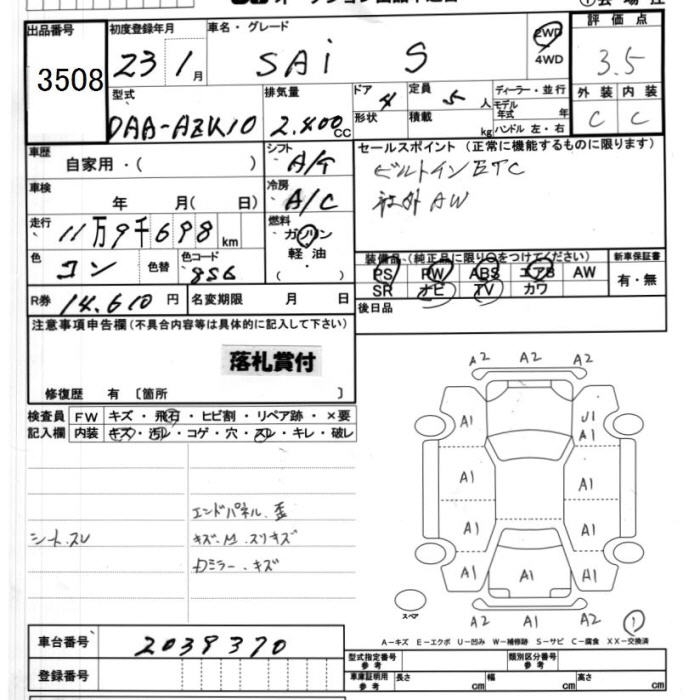 出品番号
3508
初度登録年月
23 1月
車名・グレード
SAi S
2WD
4WD
評価点
3.5
外装 内装
C C
型式
DAA-AZK10
排気量
2.400cc
ドア 4
形状
定員 5人
積載 kg
ディーラー・並行
モデル年式 年
ハンドル 左・右
車歴
自家用・( )
シフト
A/T
車検
年 月( 日)
冷房
A/C
走行
11万9千698km
燃料
ガソリン
軽油
( )
色
コン
色替
色コード
8S6
R券 14.610円
名変期限 月 日
セールスポイント(正常に機能するものに限ります)
ビルトインETC
社外AW
装備品(純正品に限り○をつけてください)
PS PW ABS エアB AW
SR ナビ TV カワ
新車保証書
有・無
後日品
注意事項申告欄(不具合内容等は具体的に記入して下さい)
落札賞付
修復歴 有 〔箇所 〕
検査員記入欄
FW キズ・飛石・ヒビ割・リペア跡・×要
内装 キズ・汚レ・コゲ・穴・スレ・キレ・破レ
エンドパネル.歪
シート.スレ
キズ.M.スリキズ
Dミラー.キズ
A2 A2 A2
A1 U1
A1
A1 A1
A1 A1
A1 A1 A1
A2 A1 A2
スペア
1
A-キズ E-エクボ U-凹み W-補修跡 S-サビ C-腐食 XX-交換済
車台番号 2039370
登録番号
型式指定番号 参考
類別区分番号 参考
車庫証明用 参考
長さ cm 幅 cm 高さ cm